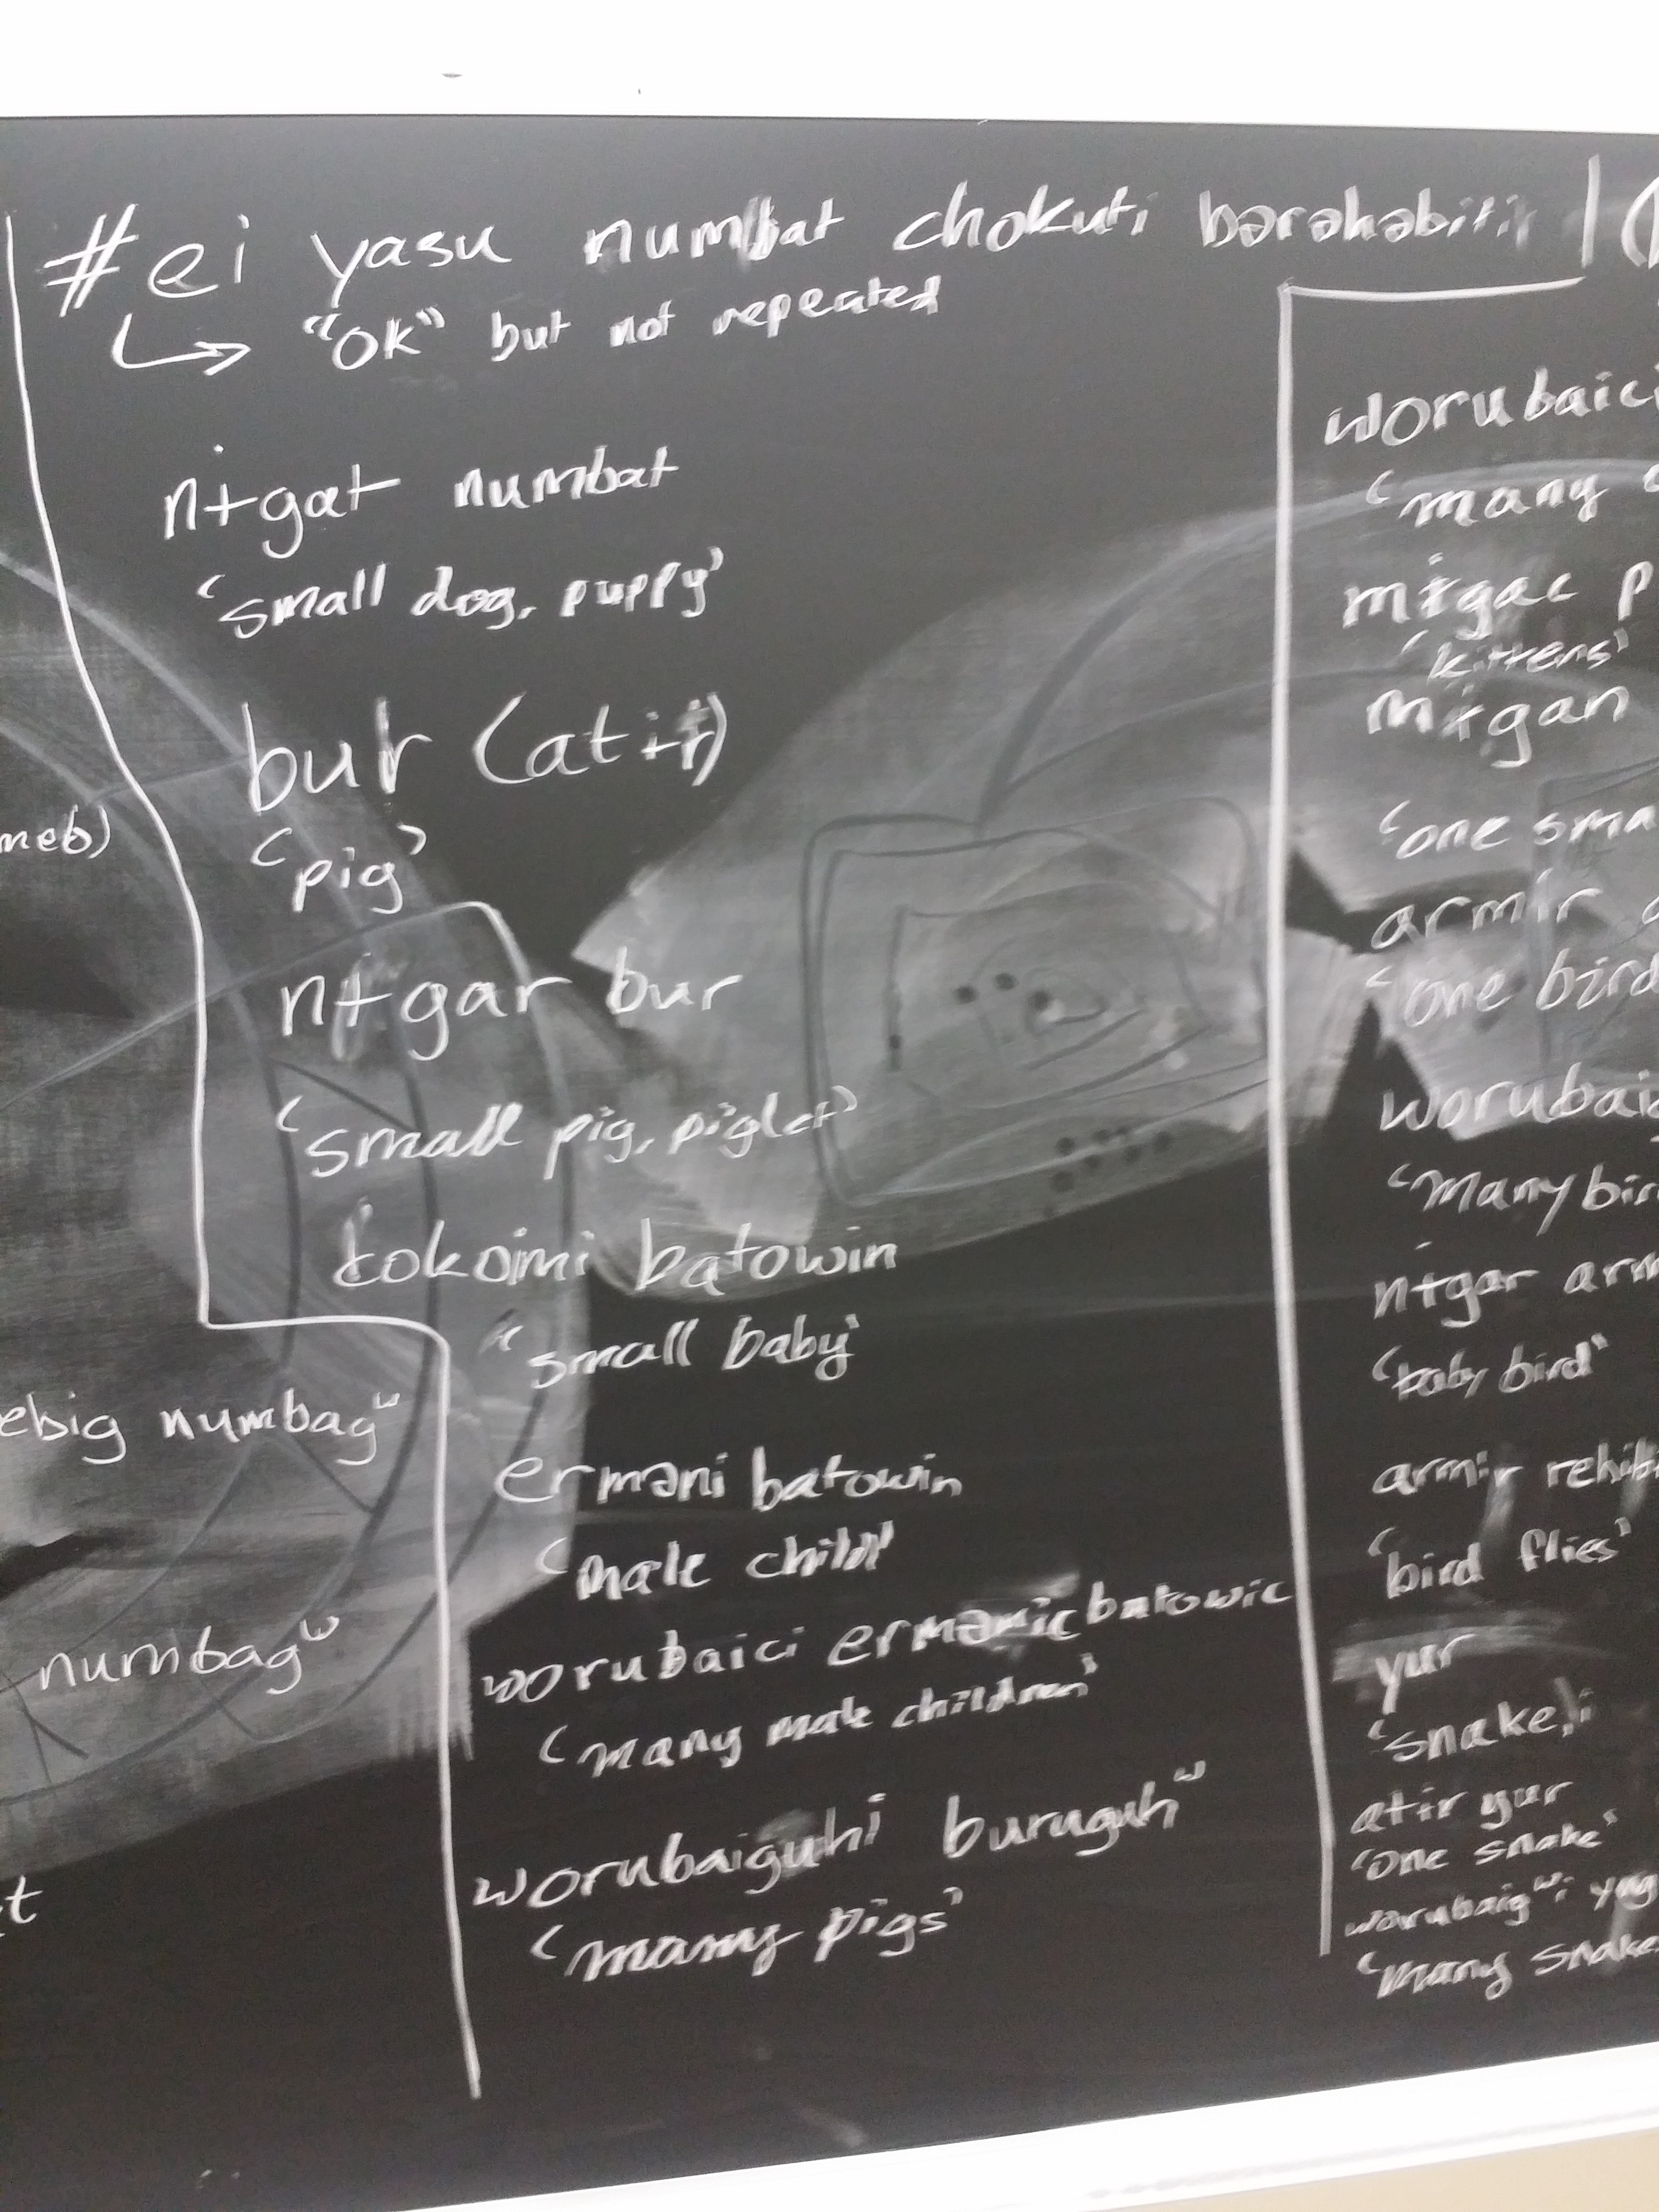 #ei yasu numbat chokuti bərəhəbitir
↳ "OK" but not repeated
nɨgat numbat
'small dog, puppy'
bur (atɨr)
'pig'
nɨgar bur
'small pig, piglet'
tokoimi batowin
'small baby'
erməni batowin
'male child'
worubaici ermənic batowic
'many male children'
worubaiguhi buruguhʷ
'many pigs'
meb)
ebig numbagʷ
numbagʷ
t
worubaici
'many
mɨgac p
'kittens'
mɨgan
'one sma
armɨr a
'one bird
worubaig
'many bir
nɨgar arm
'baby bird'
armɨr rehib
'bird flies'
yur
'snake'
atɨr yur
'one snake'
worubaigʷi yug
'many snake